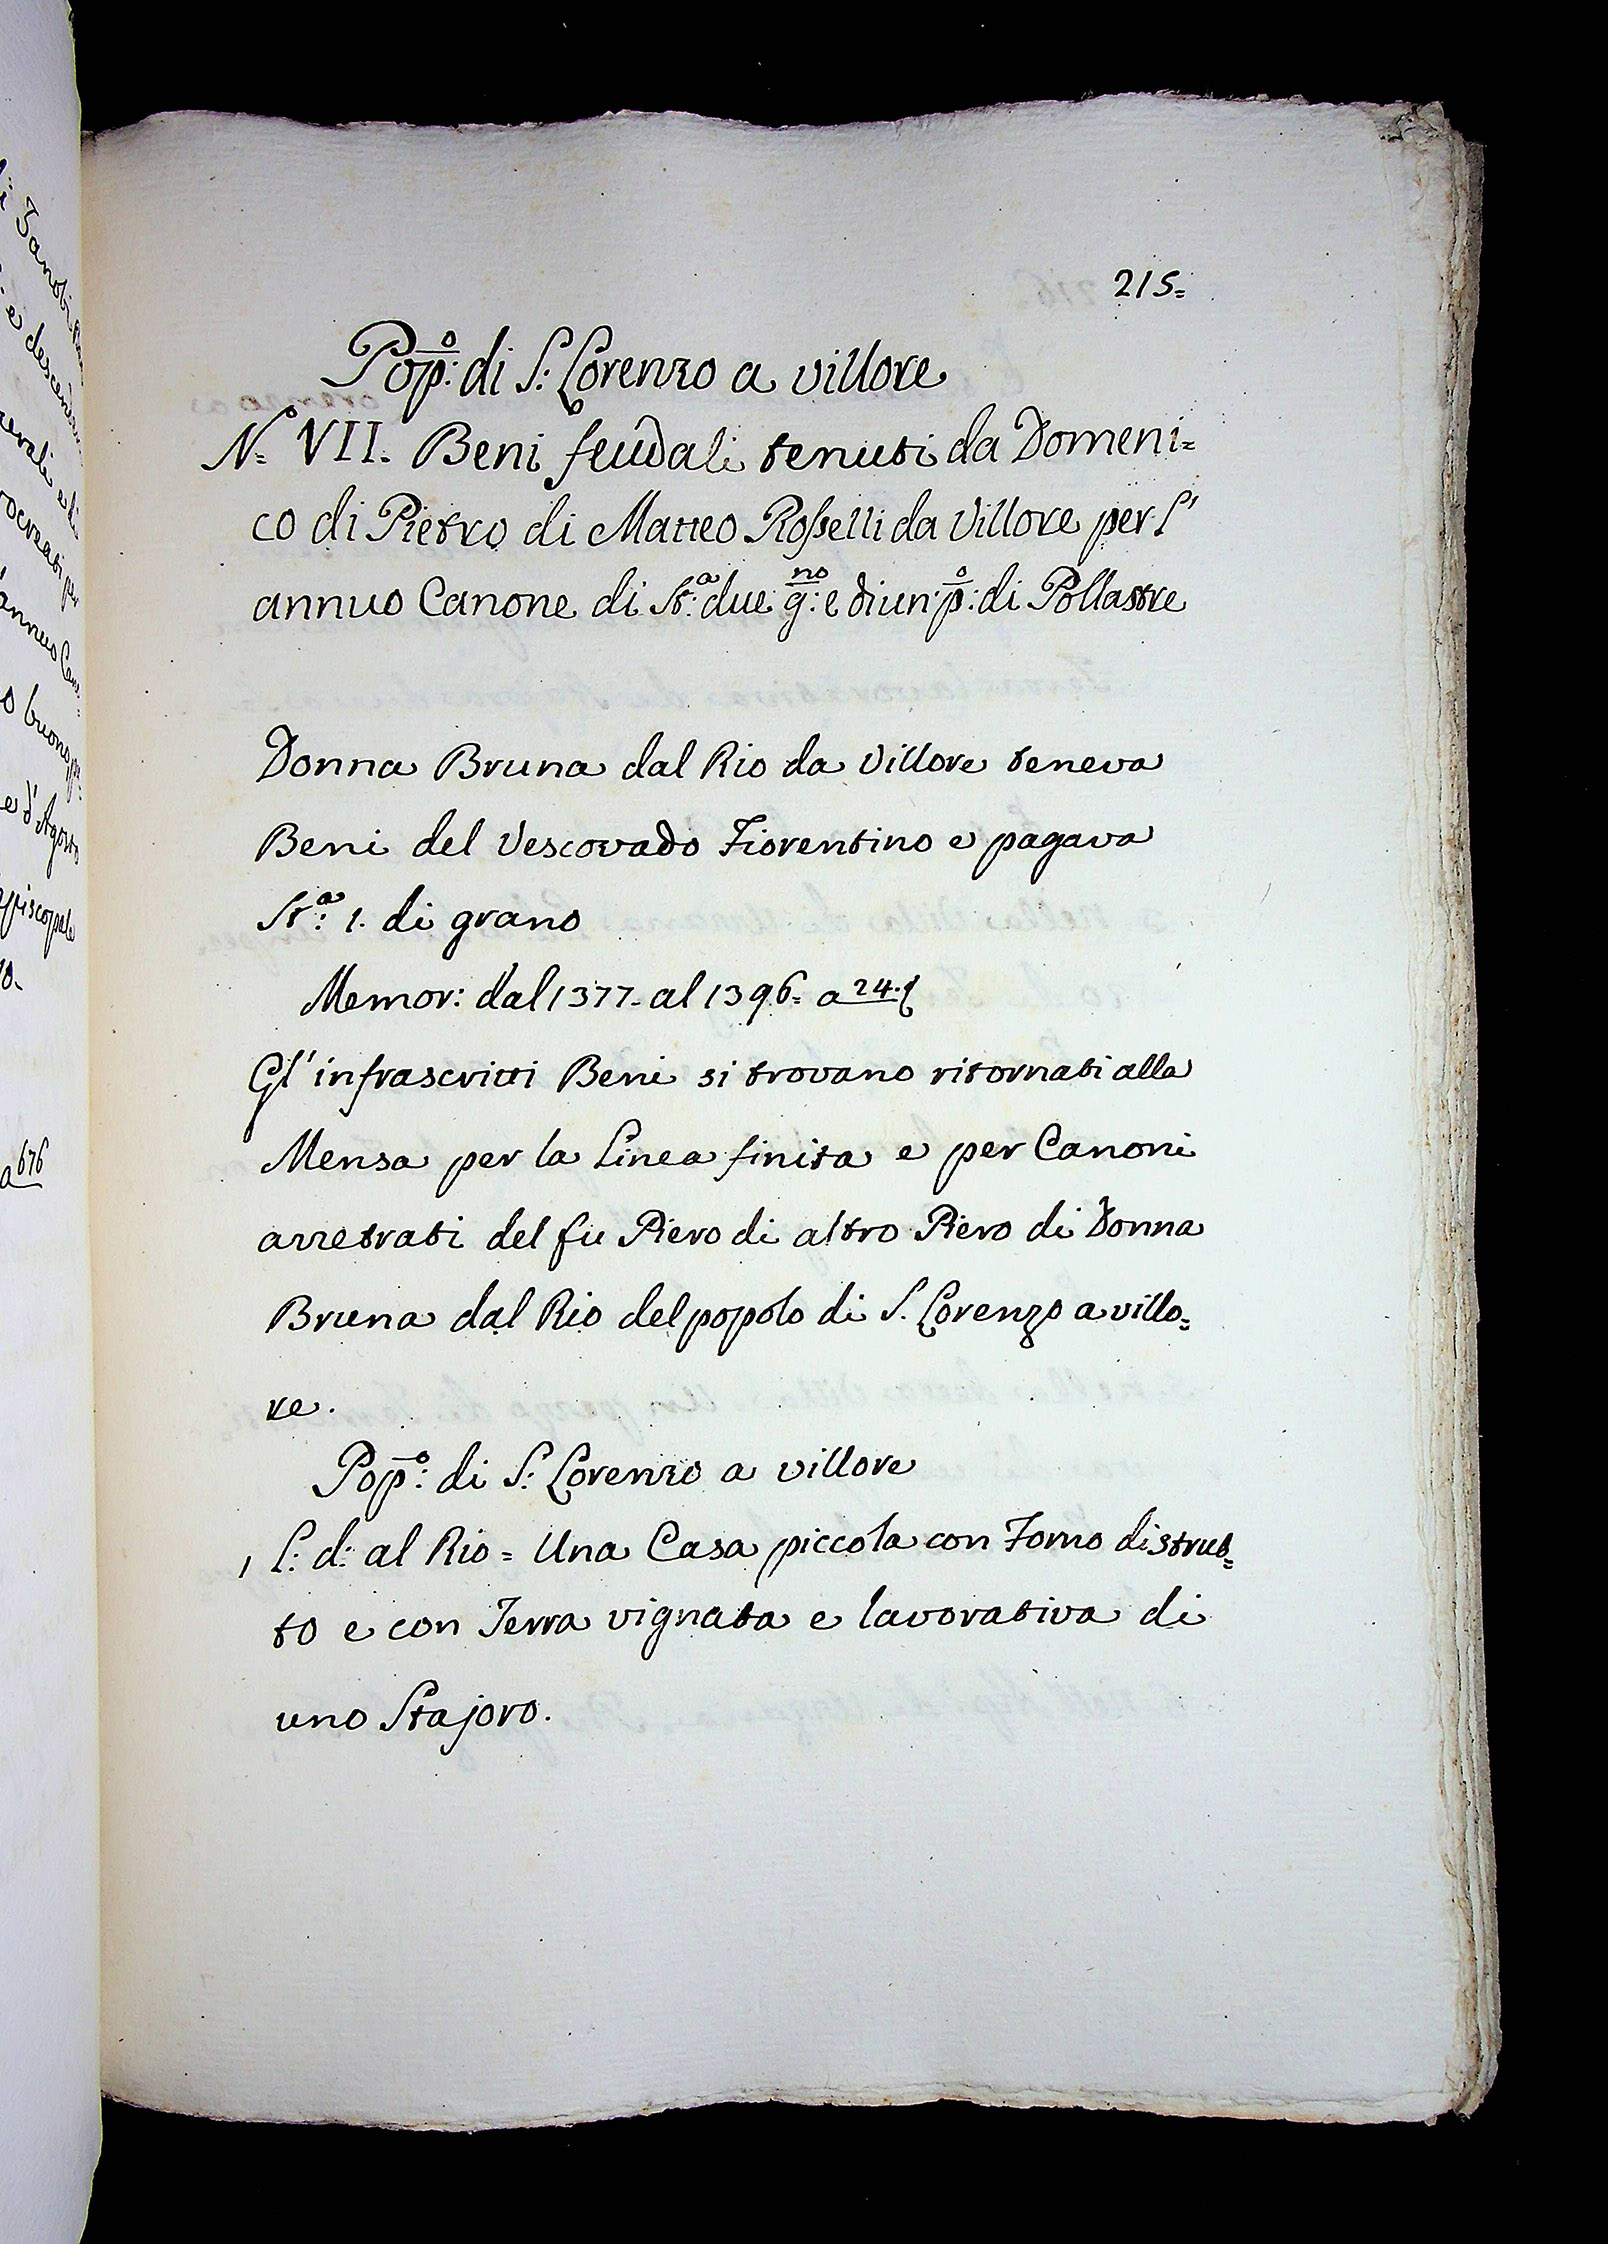 215=
Pop:o di S: Lorenzo a villore
No= VII. Beni feudali tenuti da Domeni=
co di Pietro di Matteo Rosselli da Villore per l'
annuo Canone di St:a due g:no e di un p:o di Pollastre
Donna Bruna dal Rio da Villore teneva
Beni del Vescovado Fiorentino e pagava
St:a 1. di grano
Memor: dal 1377. al 1396= a 24.
Gl'infrascritti Beni si trovano ritornati alla
Mensa per la Linea finita e per Canoni
arretrati del fu Piero di altro Piero di Donna
Bruna dal Rio del popolo di S. Lorenzo a villo=
re.
Pop:o di S: Lorenzo a villore
1 L: d: al Rio= Una Casa piccola con Forno distrut=
to e con Terra vignata e lavorativa di
uno Stajoro.
e descenden
e d'Agosto
Episcopale
a 676